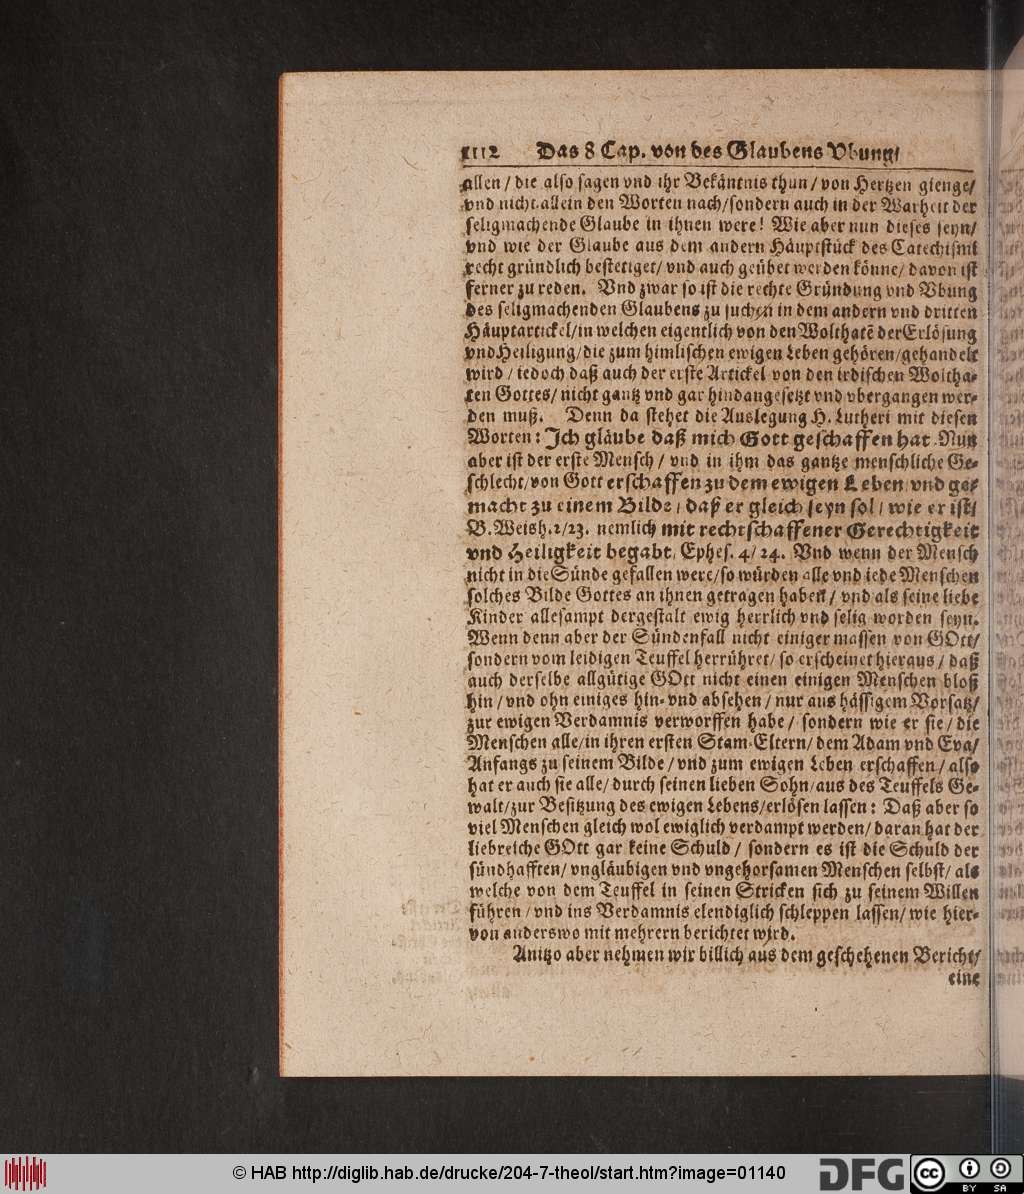 1112 Das 8 Cap. von des Glaubens Vbung/
allen / die also sagen vnd ihr Bekäntnis thun / von Hertzen gienge/
vnd nicht allein den Worten nach/ sondern auch in der Warheit der
seligmachende Glaube in ihnen were! Wie aber nun dieses seyn/
vnd wie der Glaube aus dem andern Häuptstück des Catechismi
recht gründlich bestetiget/ vnd auch geübet werden könne/ davon ist
ferner zu reden. Vnd zwar so ist die rechte Gründung vnd Vbung
des seligmachenden Glaubens zu suchen in dem andern vnd dritten
Häuptartickel/ in welchen eigentlich von den Wolthatẽ der Erlösung
vnd Heiligung/ die zum himlischen ewigen Leben gehören/ gehandelt
wird / iedoch daß auch der erste Artickel von den irdischen Woltha-
ten Gottes/ nicht gantz vnd gar hindangesetzt vnd vbergangen wer-
den muß. Denn da stehet die Auslegung H. Lutheri mit diesen
Worten: Ich gläube daß mich Gott geschaffen hat. Nun
aber ist der erste Mensch / vnd in ihm das gantze menschliche Ge-
schlecht/ von Gott erschaffen zu dem ewigen Leben vnd ge-
macht zu einem Bilde / daß er gleich seyn sol / wie er ist/
B. Weish. 2/23. nemlich mit rechtschaffener Gerechtigkeit
vnd Heiligkeit begabt, Ephes. 4/ 24. Vnd wenn der Mensch
nicht in die Sünde gefallen were/ so würden alle vnd iede Menschen
solches Bilde Gottes an ihnen getragen haben / vnd als seine liebe
Kinder allesampt dergestalt ewig herrlich vnd selig worden seyn.
Wenn denn aber der Sündenfall nicht einiger massen von GOtt/
sondern vom leidigen Teuffel herrühret/ so erscheinet hieraus / daß
auch derselbe allgütige GOtt nicht einen einigen Menschen bloß
hin / vnd ohn einiges hin- vnd absehen / nur aus hässigem Vorsatz/
zur ewigen Verdamnis verworffen habe / sondern wie er sie / die
Menschen alle/ in ihren ersten Stam-Eltern/ dem Adam vnd Eva/
Anfangs zu seinem Bilde / vnd zum ewigen Leben erschaffen / also
hat er auch sie alle/ durch seinen lieben Sohn/ aus des Teuffels Ge-
walt/ zur Besitzung des ewigen Lebens/ erlösen lassen: Daß aber so
viel Menschen gleich wol ewiglich verdampt werden/ daran hat der
liebreiche GOtt gar keine Schuld / sondern es ist die Schuld der
sündhafften/ vngläubigen vnd vngehorsamen Menschen selbst/ als
welche von dem Teuffel in seinen Stricken sich zu seinem Willen
führen / vnd ins Verdamnis elendiglich schleppen lassen/ wie hier-
von anderswo mit mehrern berichtet wird.
Anitzo aber nehmen wir billich aus dem geschehenen Bericht/
eine
© HAB http://diglib.hab.de/drucke/204-7-theol/start.htm?image=01140
DFG
cc BY SA